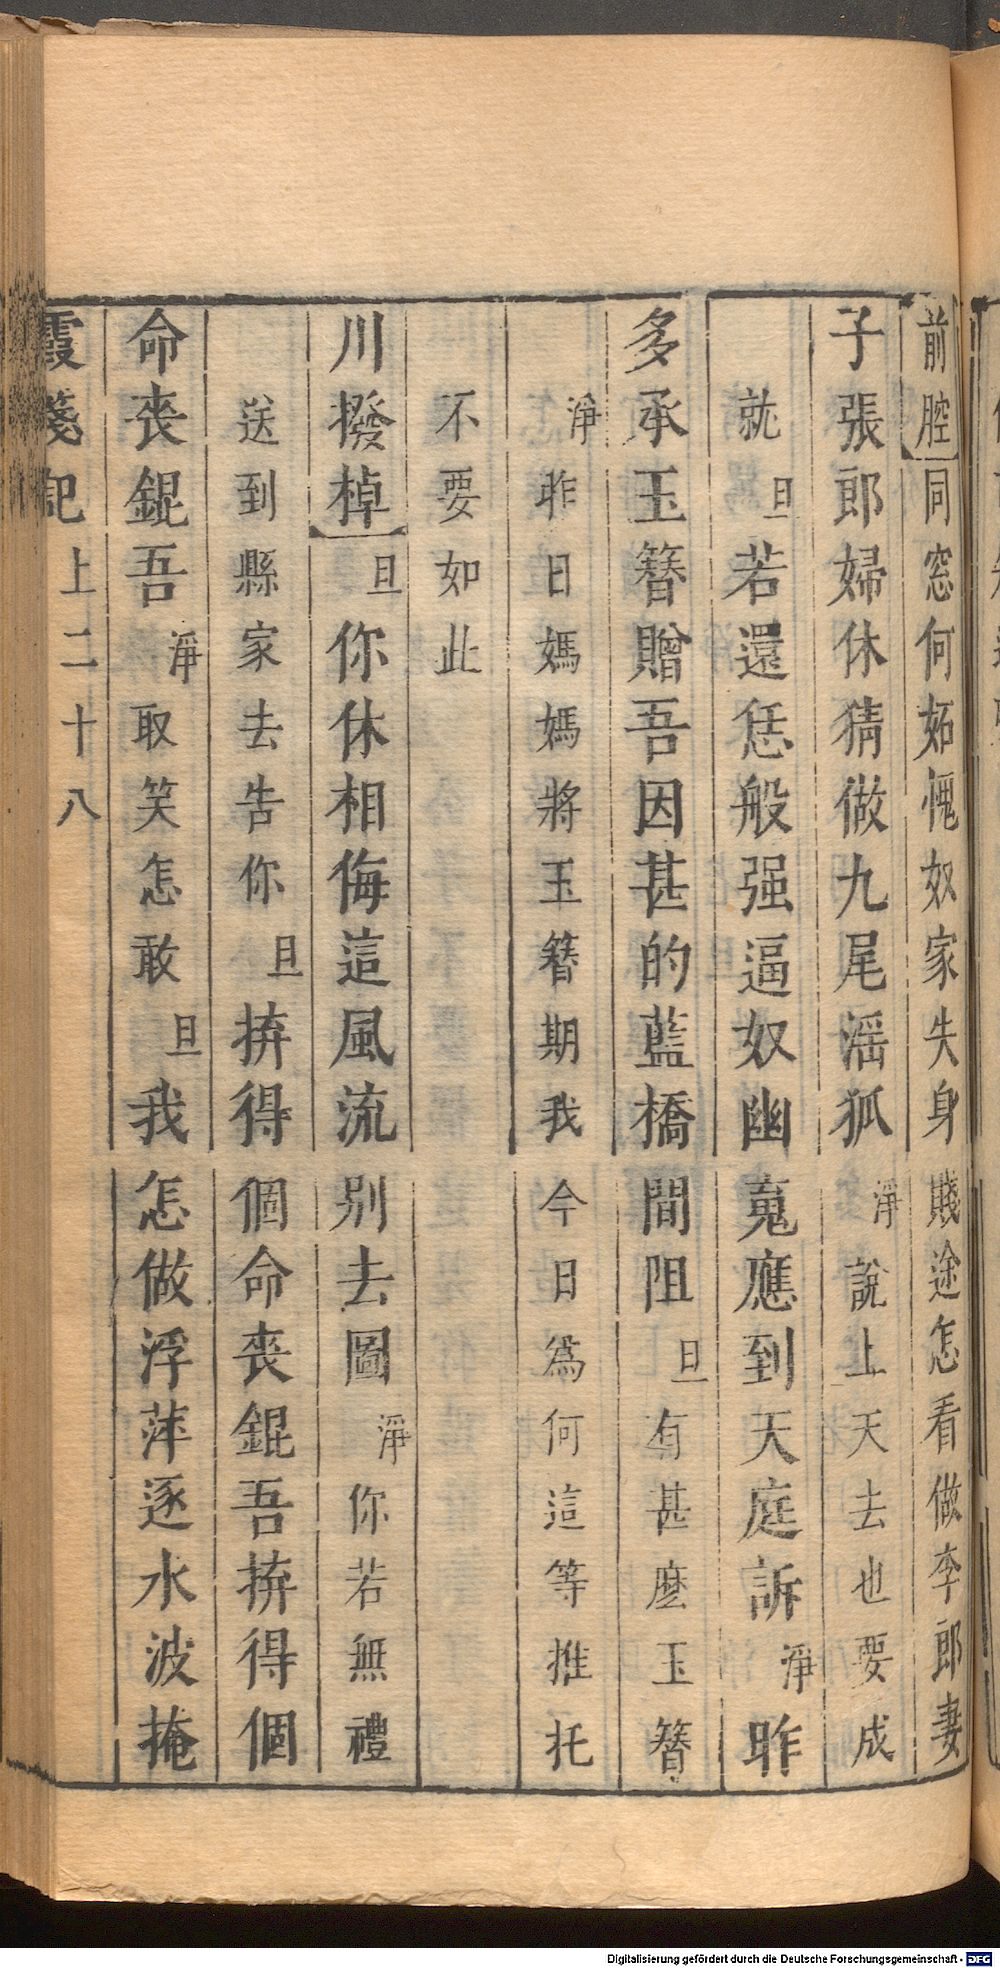 前腔同窓何妬愧奴家失身賤途怎看做李郎妻
子張郎婦休猜做九尾滛狐淨說上天去也要成
就旦若還恁般强逼奴幽䰟應到天庭訴淨昨
多承玉簪贈吾因甚的藍橋間阻旦有甚麽玉簪
淨昨日媽媽將玉簪期我今日為何這等推托
不要如此
川撥棹旦你休相侮這風流别去圖淨你若無禮
送到縣家去告你旦拚得個命喪錕吾拚得個
命喪錕吾淨取笑怎敢旦我怎做浮萍逐水波掩
霞箋記上二十八
Digitalisierung gefördert durch die Deutsche Forschungsgemeinschaft - DFG